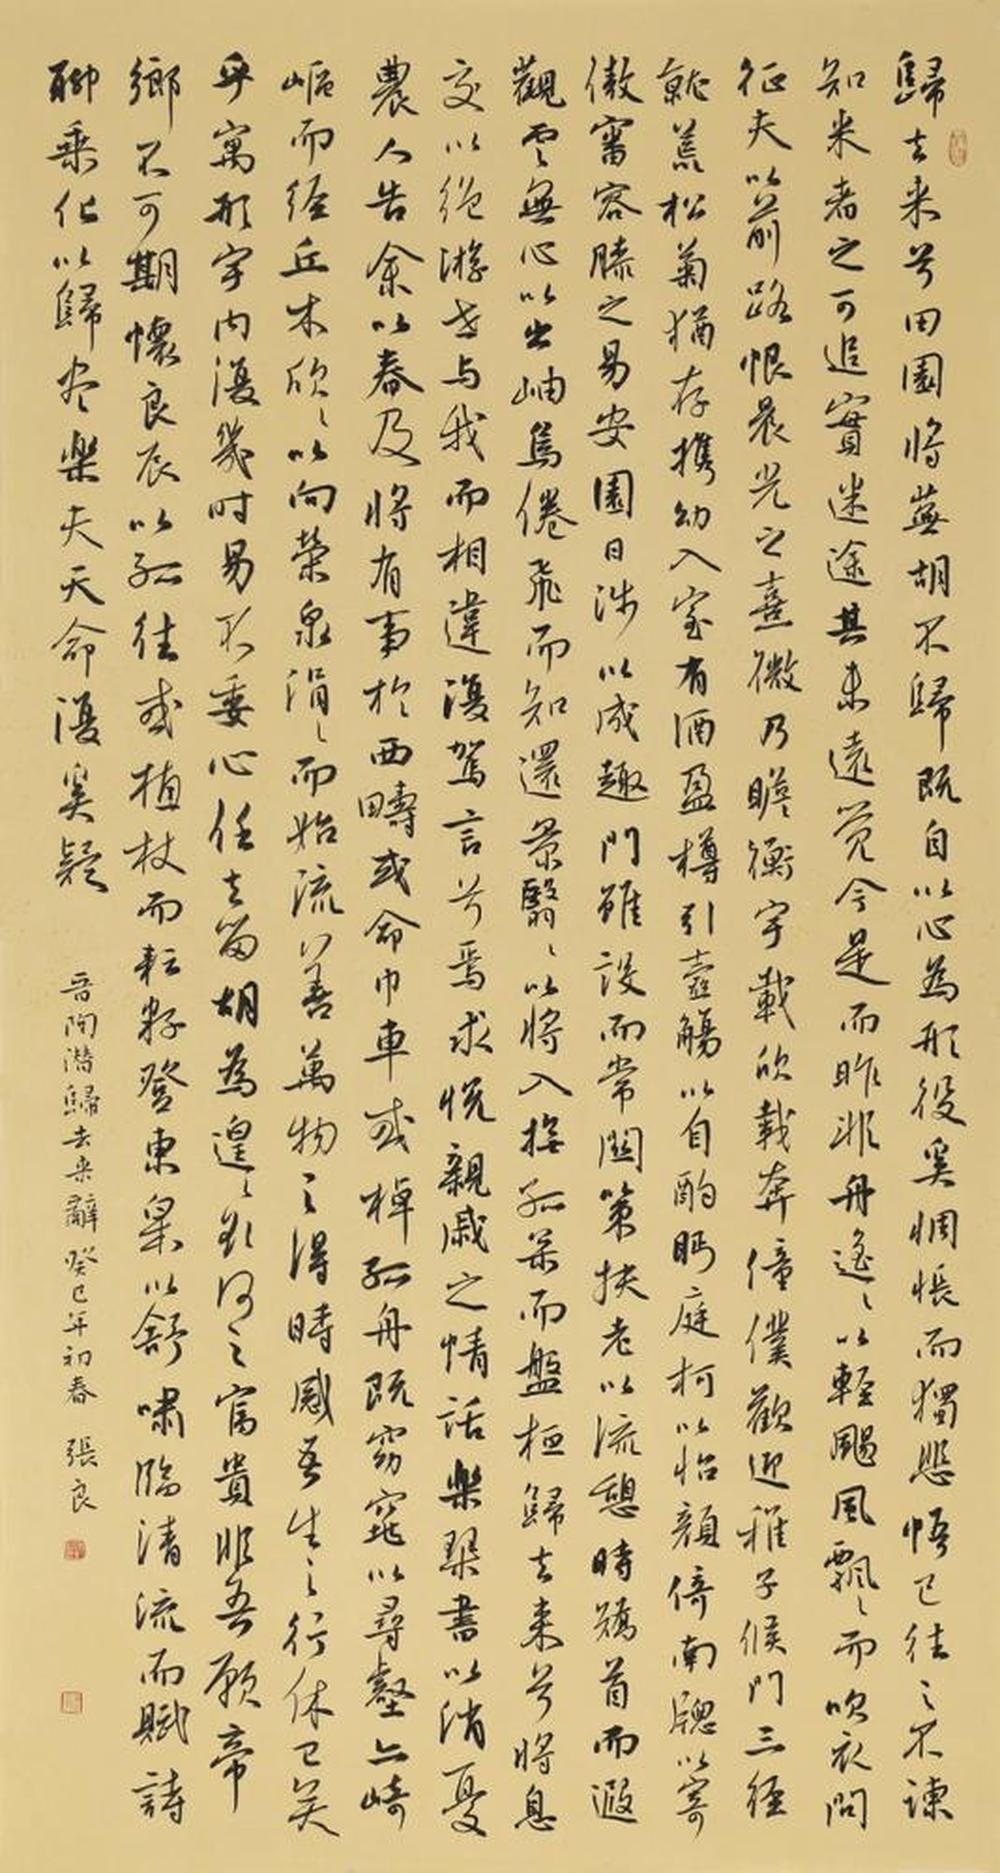 歸去来兮田園将蕪胡不歸既自以心為形役奚惆悵而獨悲悟已往之不諫
知来者之可追實迷途其未遠觉今是而昨非舟遥々以輕颺風飄々而吹衣問
征夫以前路恨晨光之熹微乃瞻衡宇載欣載奔僮僕歡迎稚子候門三径
就荒松菊猶存携幼入室有酒盈樽引壺觴以自酌眄庭柯以怡顔倚南牕以寄
傲審容膝之易安園日涉以成趣門雖設而常關策扶老以流憩時矯首而遐
觀雲無心以出岫鳥倦飛而知還景翳々以将入撫孤松而盤桓歸去来兮請息
交以绝游世与我而相違復駕言兮焉求悦親戚之情話樂琴書以消憂
農人告余以春及将有事於西疇或命巾車或棹孤舟既窈窕以尋壑亦崎
嶇而經丘木欣々以向榮泉涓々而始流善萬物之得時感吾生之行休已矣
乎寓形宇内復幾時曷不委心任去留胡為遑々欲何之富貴非吾願帝
鄉不可期懷良辰以孤往或植杖而耘耔登東皋以舒嘯臨清流而賦詩
聊乘化以歸盡樂夫天命復奚疑
晋陶潜歸去来辭癸巳年初春 張良